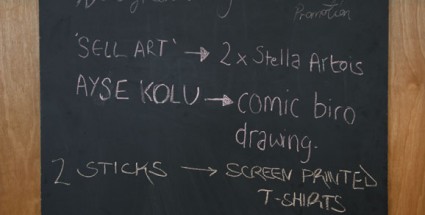 Promotion
'SELL ART' → 2 x Stella Artois
AYSE KOLU → comic biro
drawing.
2 STICKS → SCREEN PRINTED
T-SHIRTS